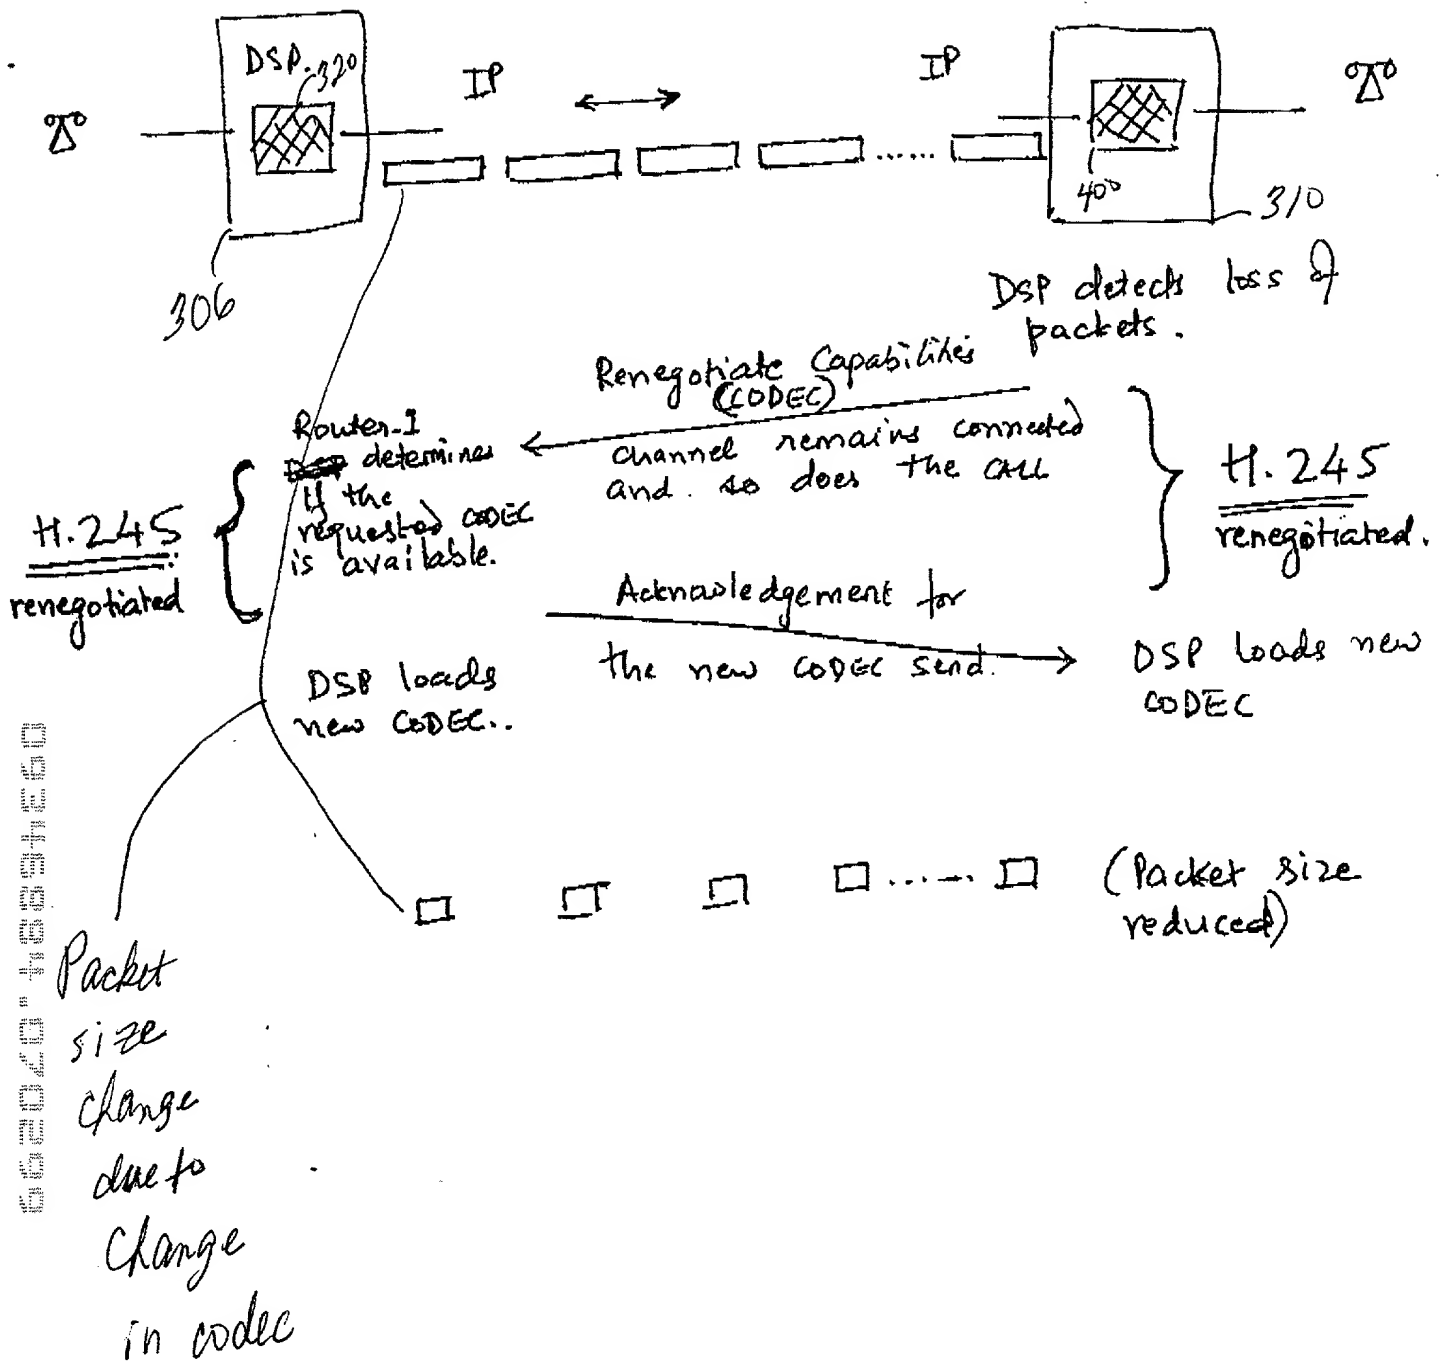 DSP.
320
IP
IP
400
306
310
DSP detects loss of
packets.
Renegotiate Capabilities
(CODEC)
channel remains connected
and. so does the CALL
H.245
renegotiated.
Router-I
determines
If the
requested CODEC
is available.
H.245
renegotiated
Acknowledgement for
the new CODEC send.
DSP loads
new CODEC..
DSP loads new
CODEC
(Packet size
reduced)
Packet
size
change
due to
Change
in codec